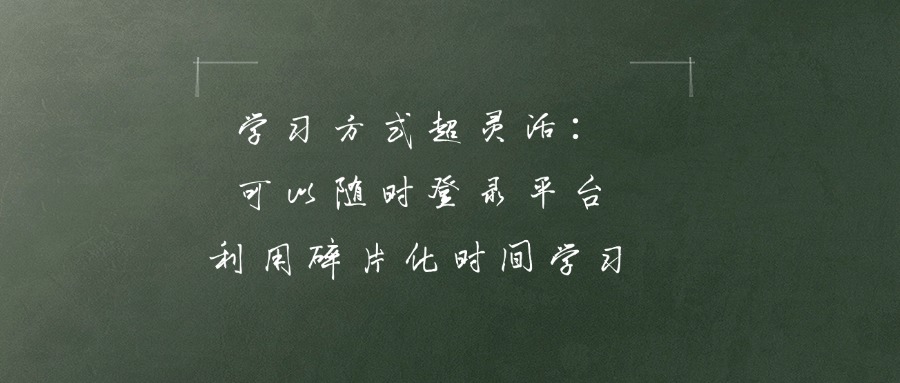 学习方式超灵活：
可以随时登录平台
利用碎片化时间学习